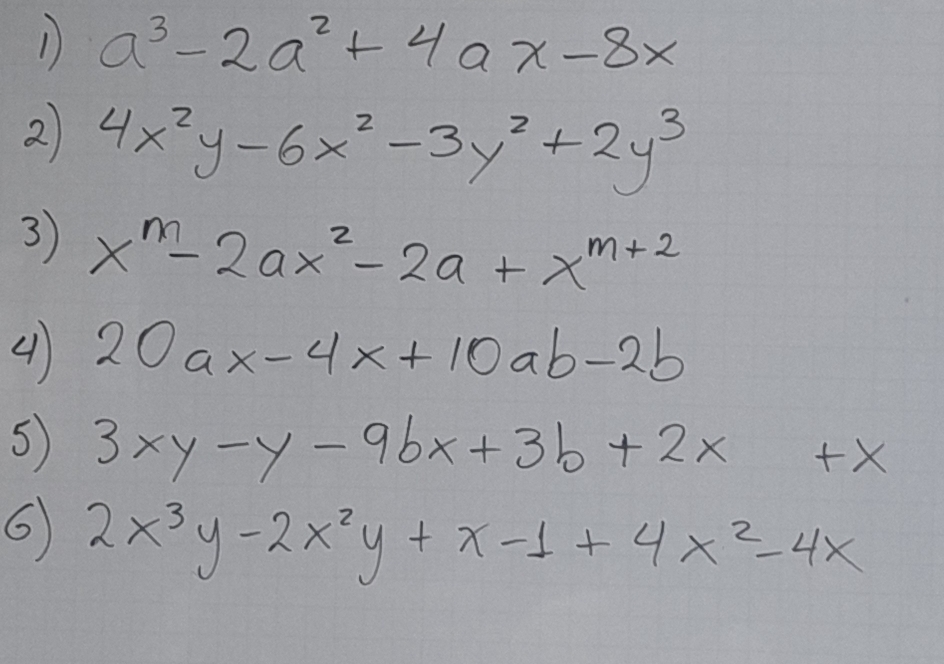 1) a³ - 2a² + 4ax - 8x
2) 4x²y - 6x² - 3y² + 2y³
3) xᵐ - 2ax² - 2a + xᵐ⁺²
4) 20ax - 4x + 10ab - 2b
5) 3xy - y - 9bx + 3b + 2x +x
6) 2x³y - 2x²y + x - 1 + 4x² - 4x